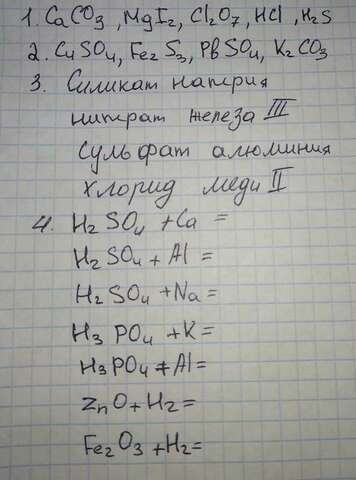 1. CaCO3, MgI2, Cl2O7, HCl, H2S
2. CuSO4, Fe2S3, PbSO4, K2CO3
3. Силикат натрия
нитрат железа III
Сульфат алюминия
Хлорид меди II
4. H2SO4 + Ca =
H2SO4 + Al =
H2SO4 + Na =
H3PO4 + K =
H3PO4 + Al =
ZnO + H2 =
Fe2O3 + H2 =